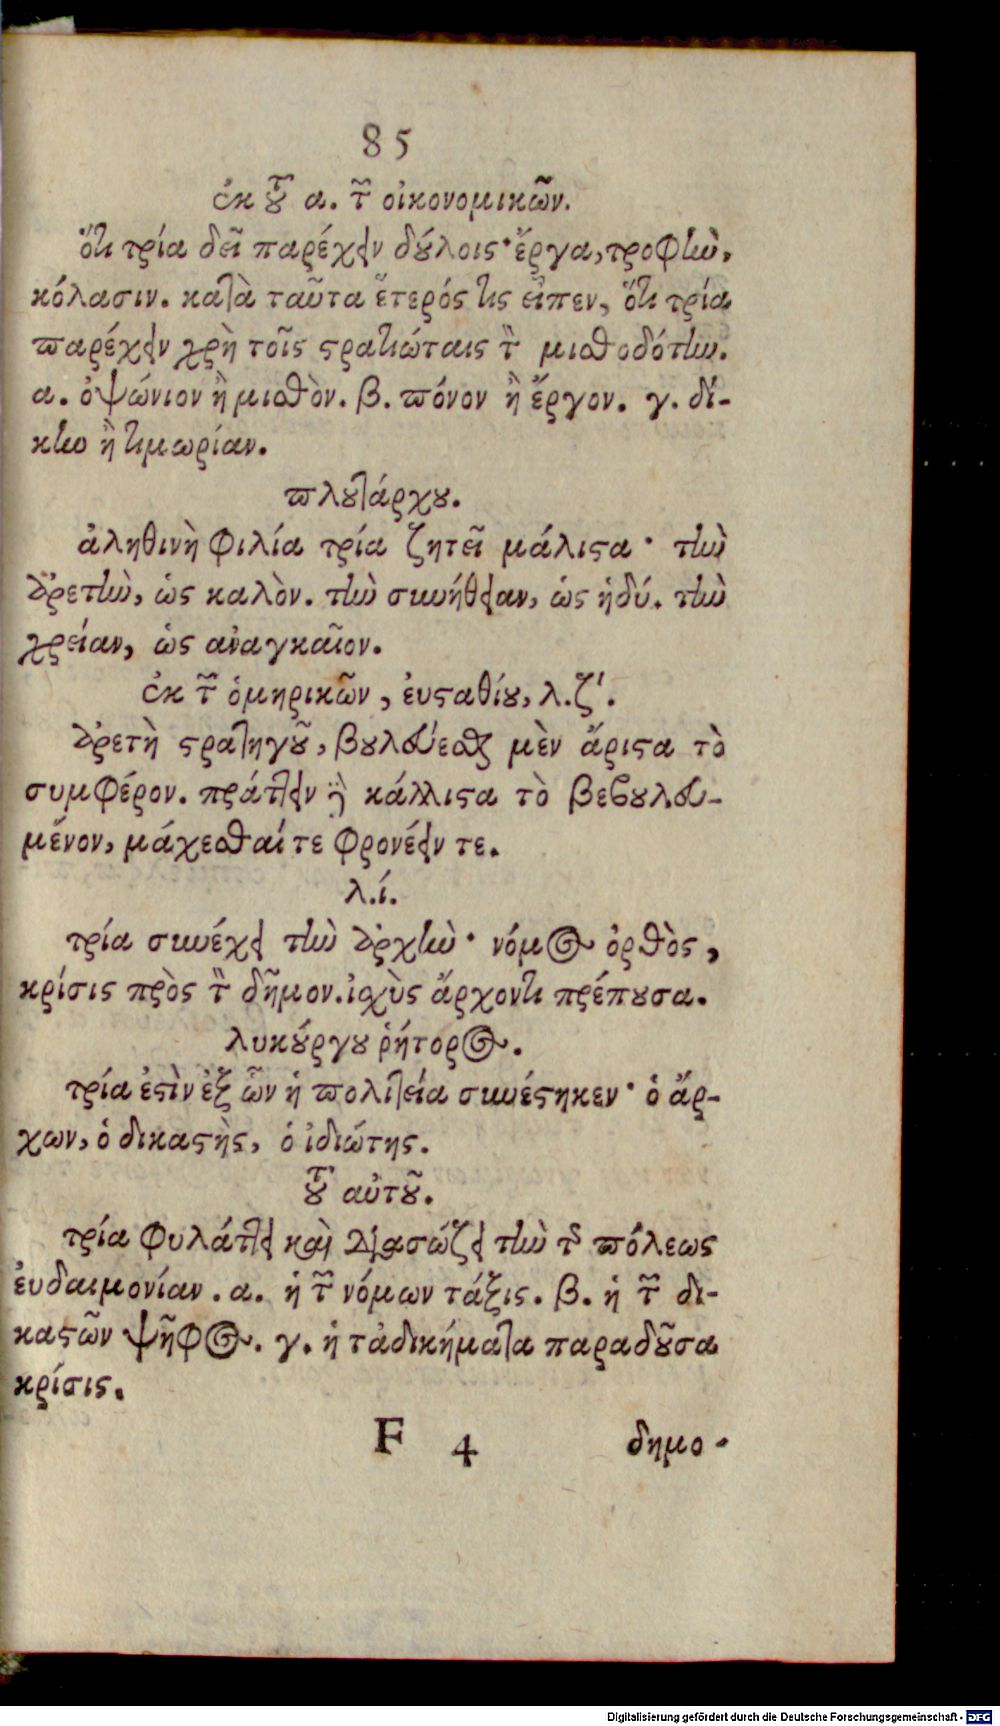 85
ἐκ τοῦ α. τῶν οἰκονομικῶν.
ὅτι τρία δεῖ παρέχειν δούλοις· ἔργα, τροφὴν,
κόλασιν. κατὰ ταῦτα ἕτερός τις εἶπεν, ὅτι τρία
παρέχειν χρὴ τοῖς στρατιώταις τὸν μισθοδότην.
α. ὀψώνιον ἢ μισθὸν. β. πόνον ἢ ἔργον. γ. δί-
κην ἢ τιμωρίαν.
πλουτάρχου.
ἀληθινὴ φιλία τρία ζητεῖ μάλιστα· τὴν
ἀρετὴν, ὡς καλὸν. τὴν συνήθειαν, ὡς ἡδύ. τὴν
χρείαν, ὡς ἀναγκαῖον.
ἐκ τῶν ὁμηρικῶν, ἐυσταθίου, λ.ζʹ.
ἀρετὴ στρατηγοῦ, βουλεύεσθαι μὲν ἄριστα τὸ
συμφέρον. πράττειν δὲ κάλλιστα τὸ βεβουλευ-
μένον, μάχεσθαί τε φρονέειν τε.
λ.ί.
τρία συνέχει τὴν ἀρχὴν· νόμος ὀρθὸς,
κρίσις πρὸς τὸν δῆμον. ἰσχὺς ἄρχοντι πρέπουσα.
λυκούργου ῥήτορος.
τρία ἐστὶν ἐξ ὧν ἡ πολιτεία συνέστηκεν· ὁ ἄρ-
χων, ὁ δικαστὴς, ὁ ἰδιώτης.
τοῦ αὐτοῦ.
τρία φυλάττει καὶ διασώζει τὴν τῆς πόλεως
ἐυδαιμονίαν. α. ἡ τῶν νόμων τάξις. β. ἡ τῶν δι-
καστῶν ψῆφος. γ. ἡ τἀδικήματα παραδοῦσα
κρίσις.
F 4 δημο-
Digitalisierung gefördert durch die Deutsche Forschungsgemeinschaft - DFG